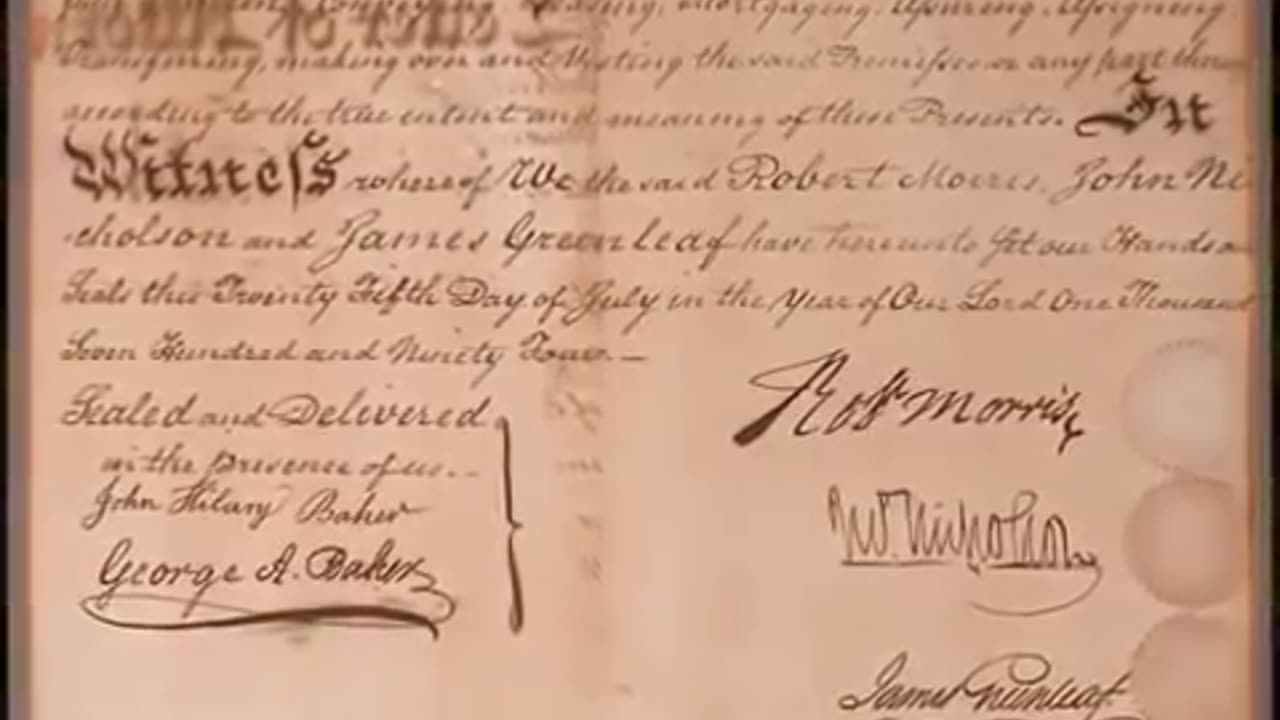 Mortgaging, Assuring, Assigning
Transferring, making over and Vesting the said Premisses or any part
according to the true intent and meaning of these Presents. In
Witness whereof We the said Robert Morris, John Ni
cholson and James Greenleaf have hereunto set our Hands
Seals this Twenty Fifth Day of July in the Year of Our Lord One Thousand
Seven Hundred and Ninety Four.—
Sealed and Delivered
in the presence of us.--
John Hilary Baker
George A. Baker
Robt Morris
Jno. Nicholson
James Greenleaf